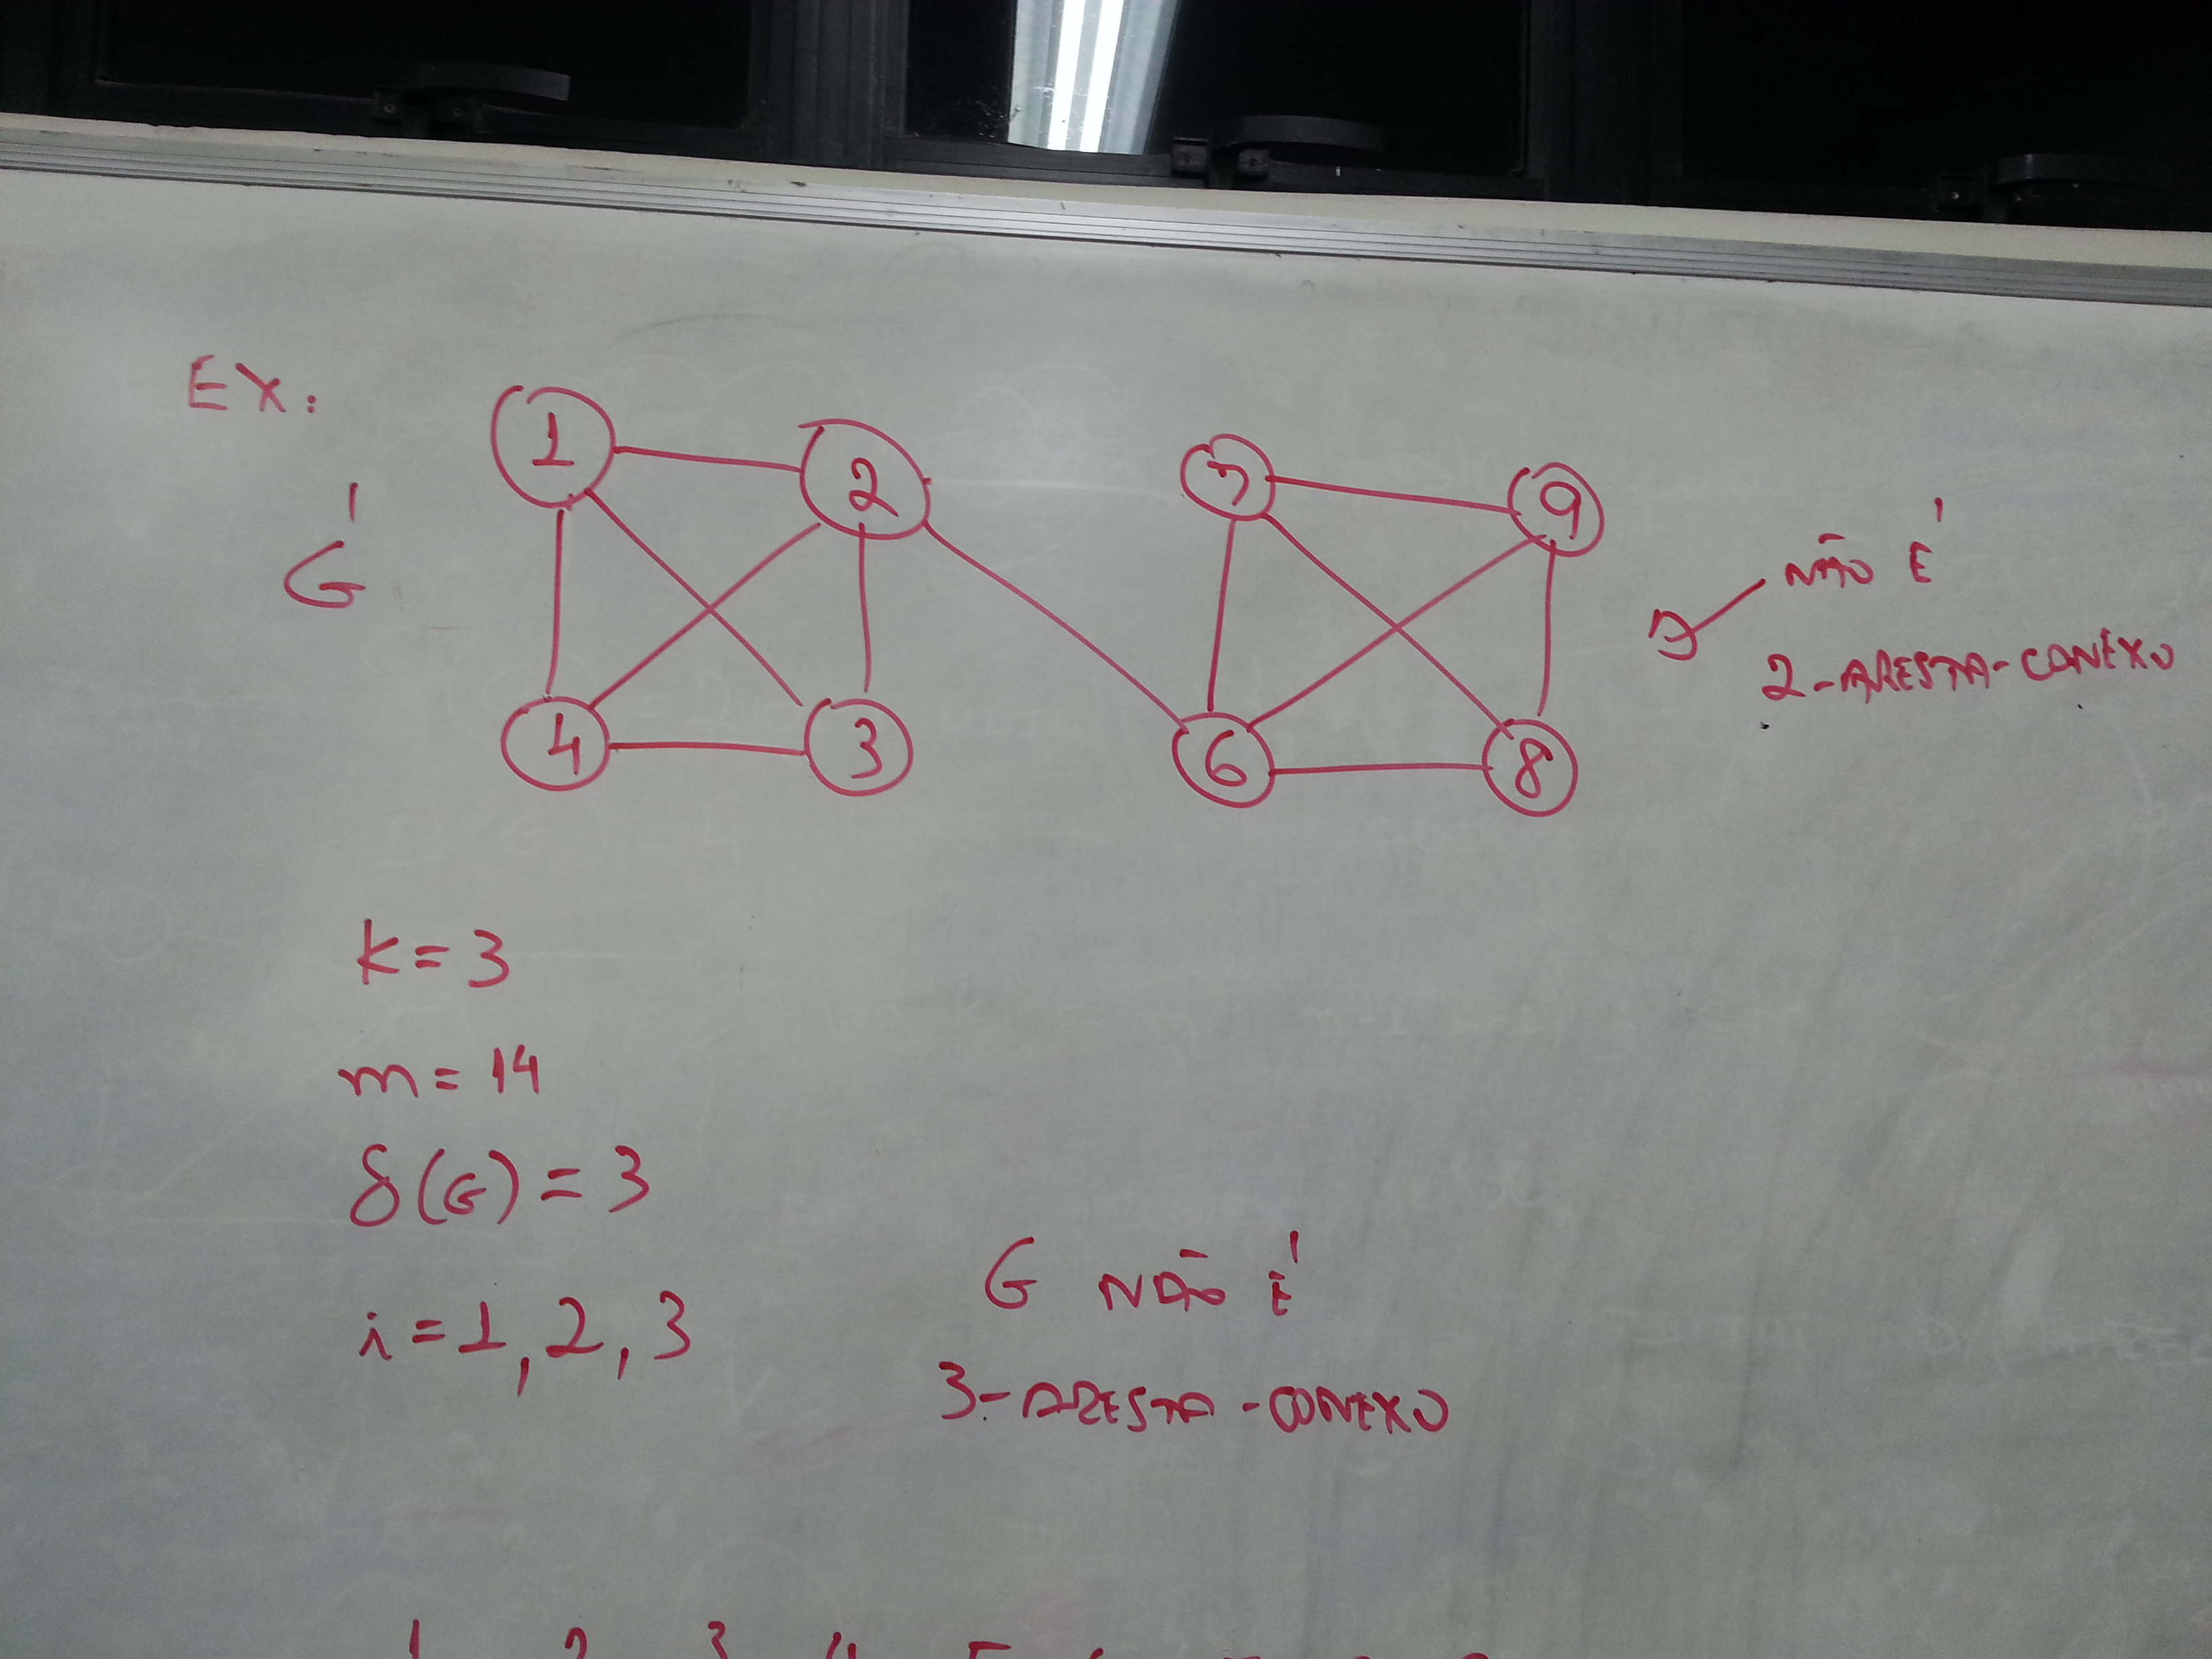 EX:
G'
1
2
7
9
4
3
6
8
NÃO É
2-ARESTA-CONEXO
k = 3
m = 14
δ(G) = 3
i = 1, 2, 3
G NÃO É
3-ARESTA-CONEXO